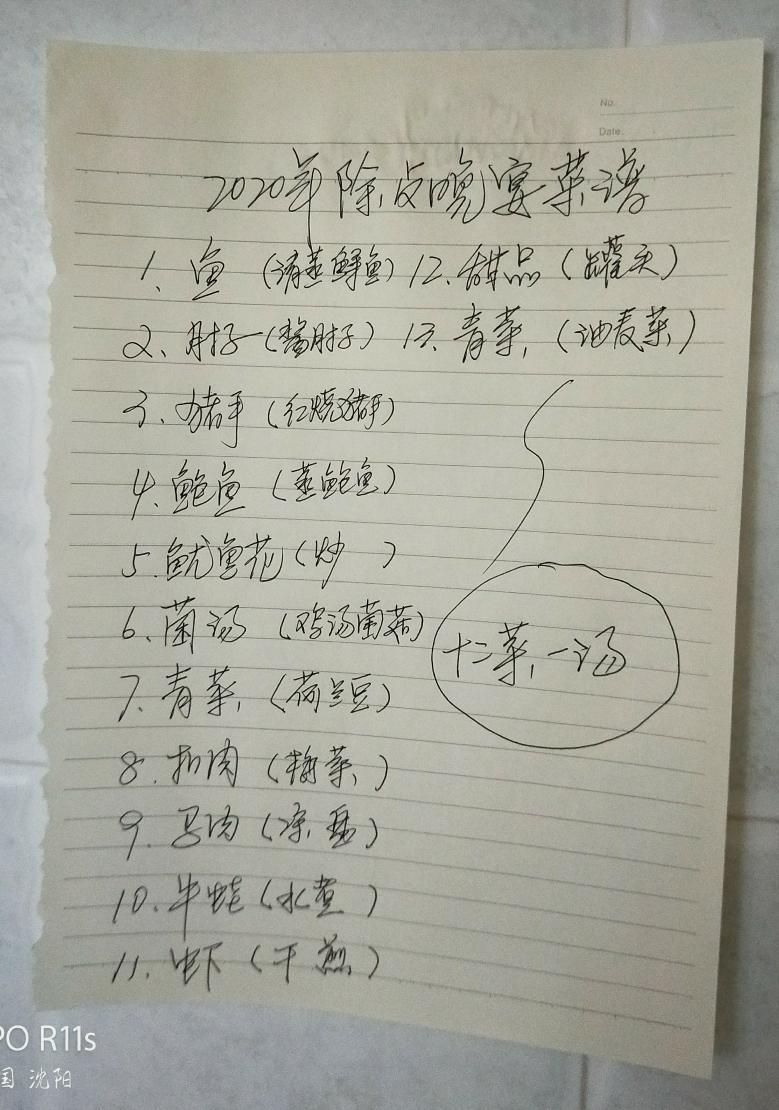 No.
Date.
2020年除夕晚宴菜谱
1、鱼（清蒸鲜鱼）12、甜品（罐头）
2、肘子（酱肘子）13、青菜（油麦菜）
3、猪手（红烧猪手）
4、鲍鱼（蒸鲍鱼）
5、鱿鱼花（炒 ）
6、菌汤（鸡汤菌菇）
7、青菜（荷兰豆）
8、扣肉（梅菜）
9、马肉（凉盘）
10、牛蛙（水煮）
11、虾（干煎）
十二菜一汤
PO R11s
国 沈阳